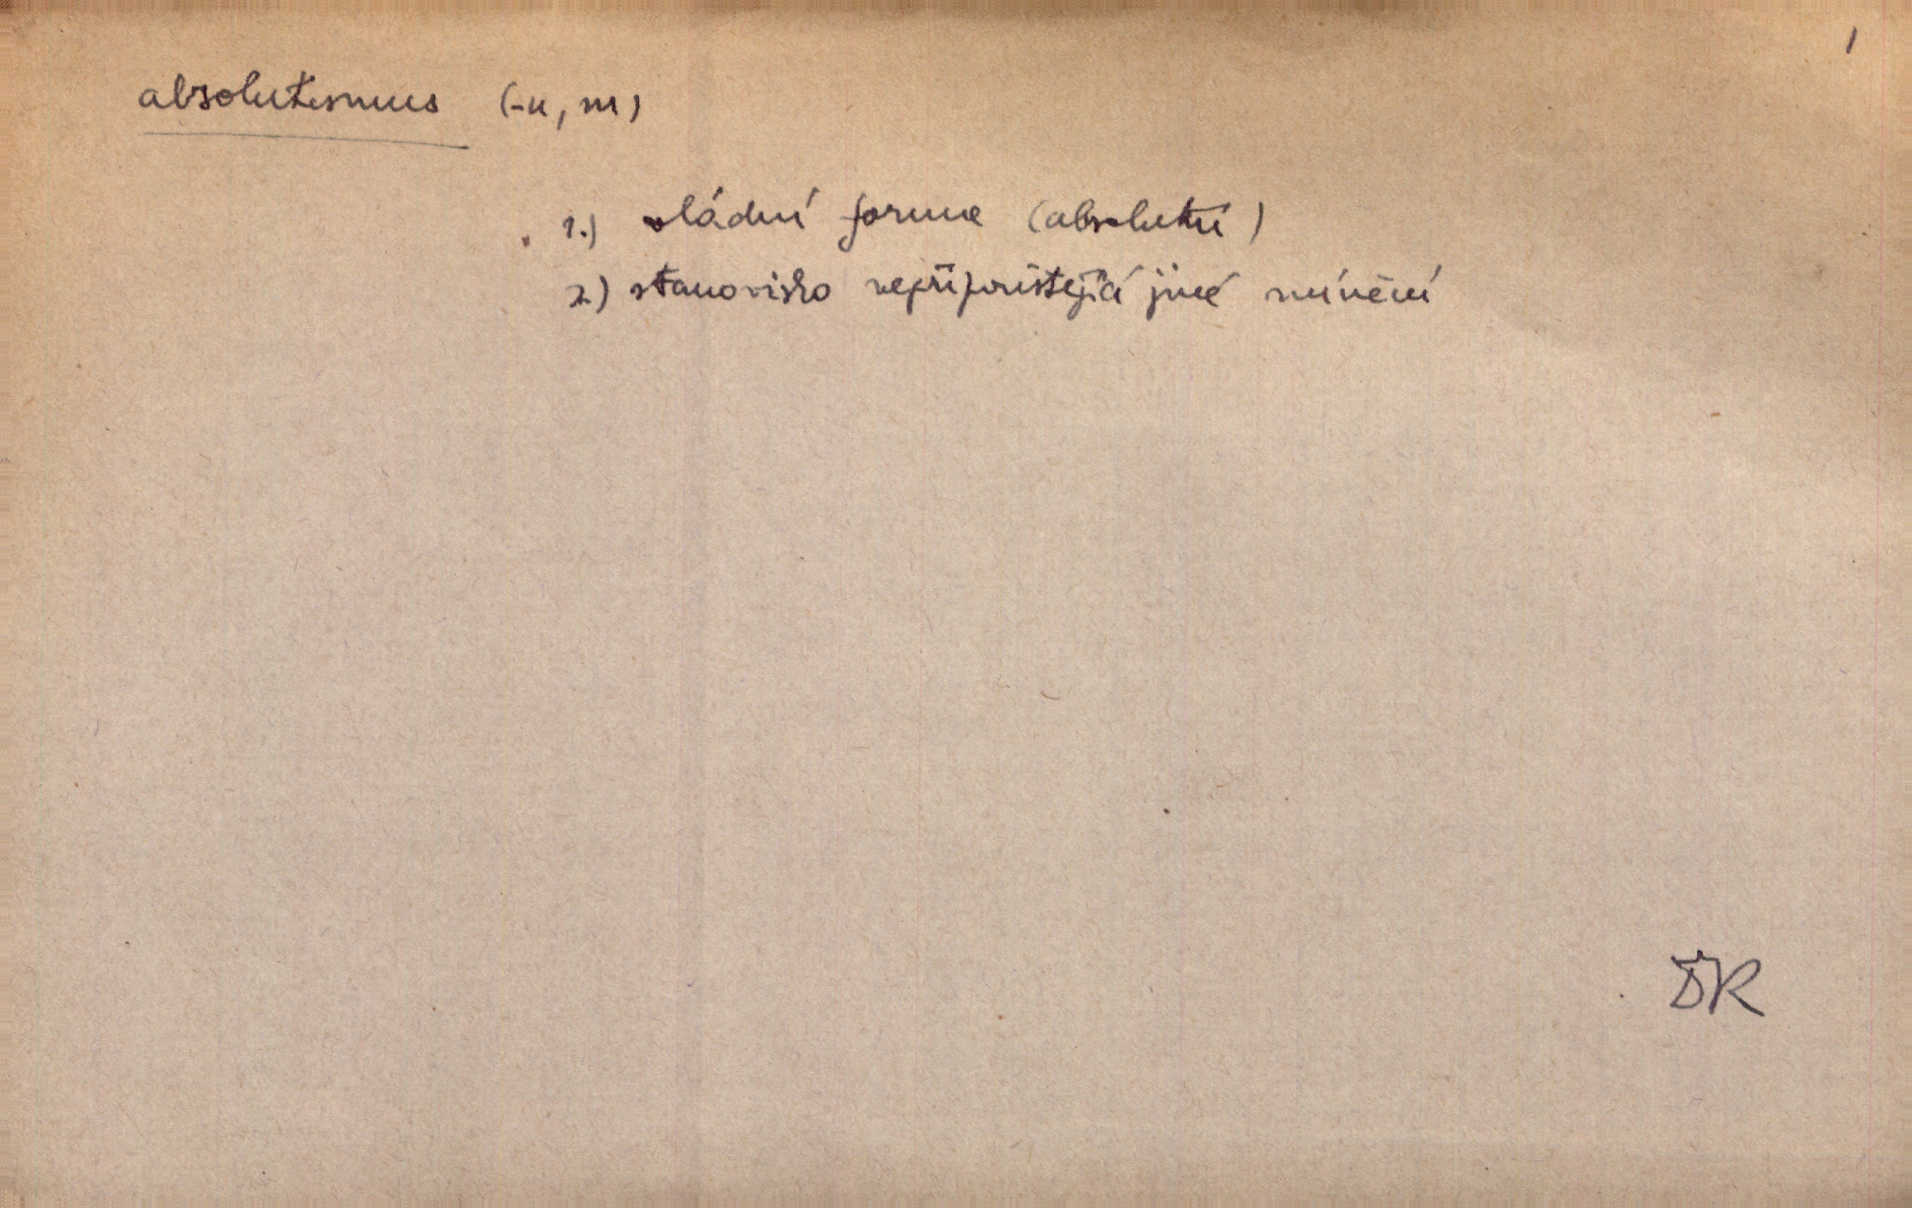 1
absolutismus (-u, m)
1.) vládní forma (absolutní)
2) stanovisko nepřipouštějící jiné mínění
DK